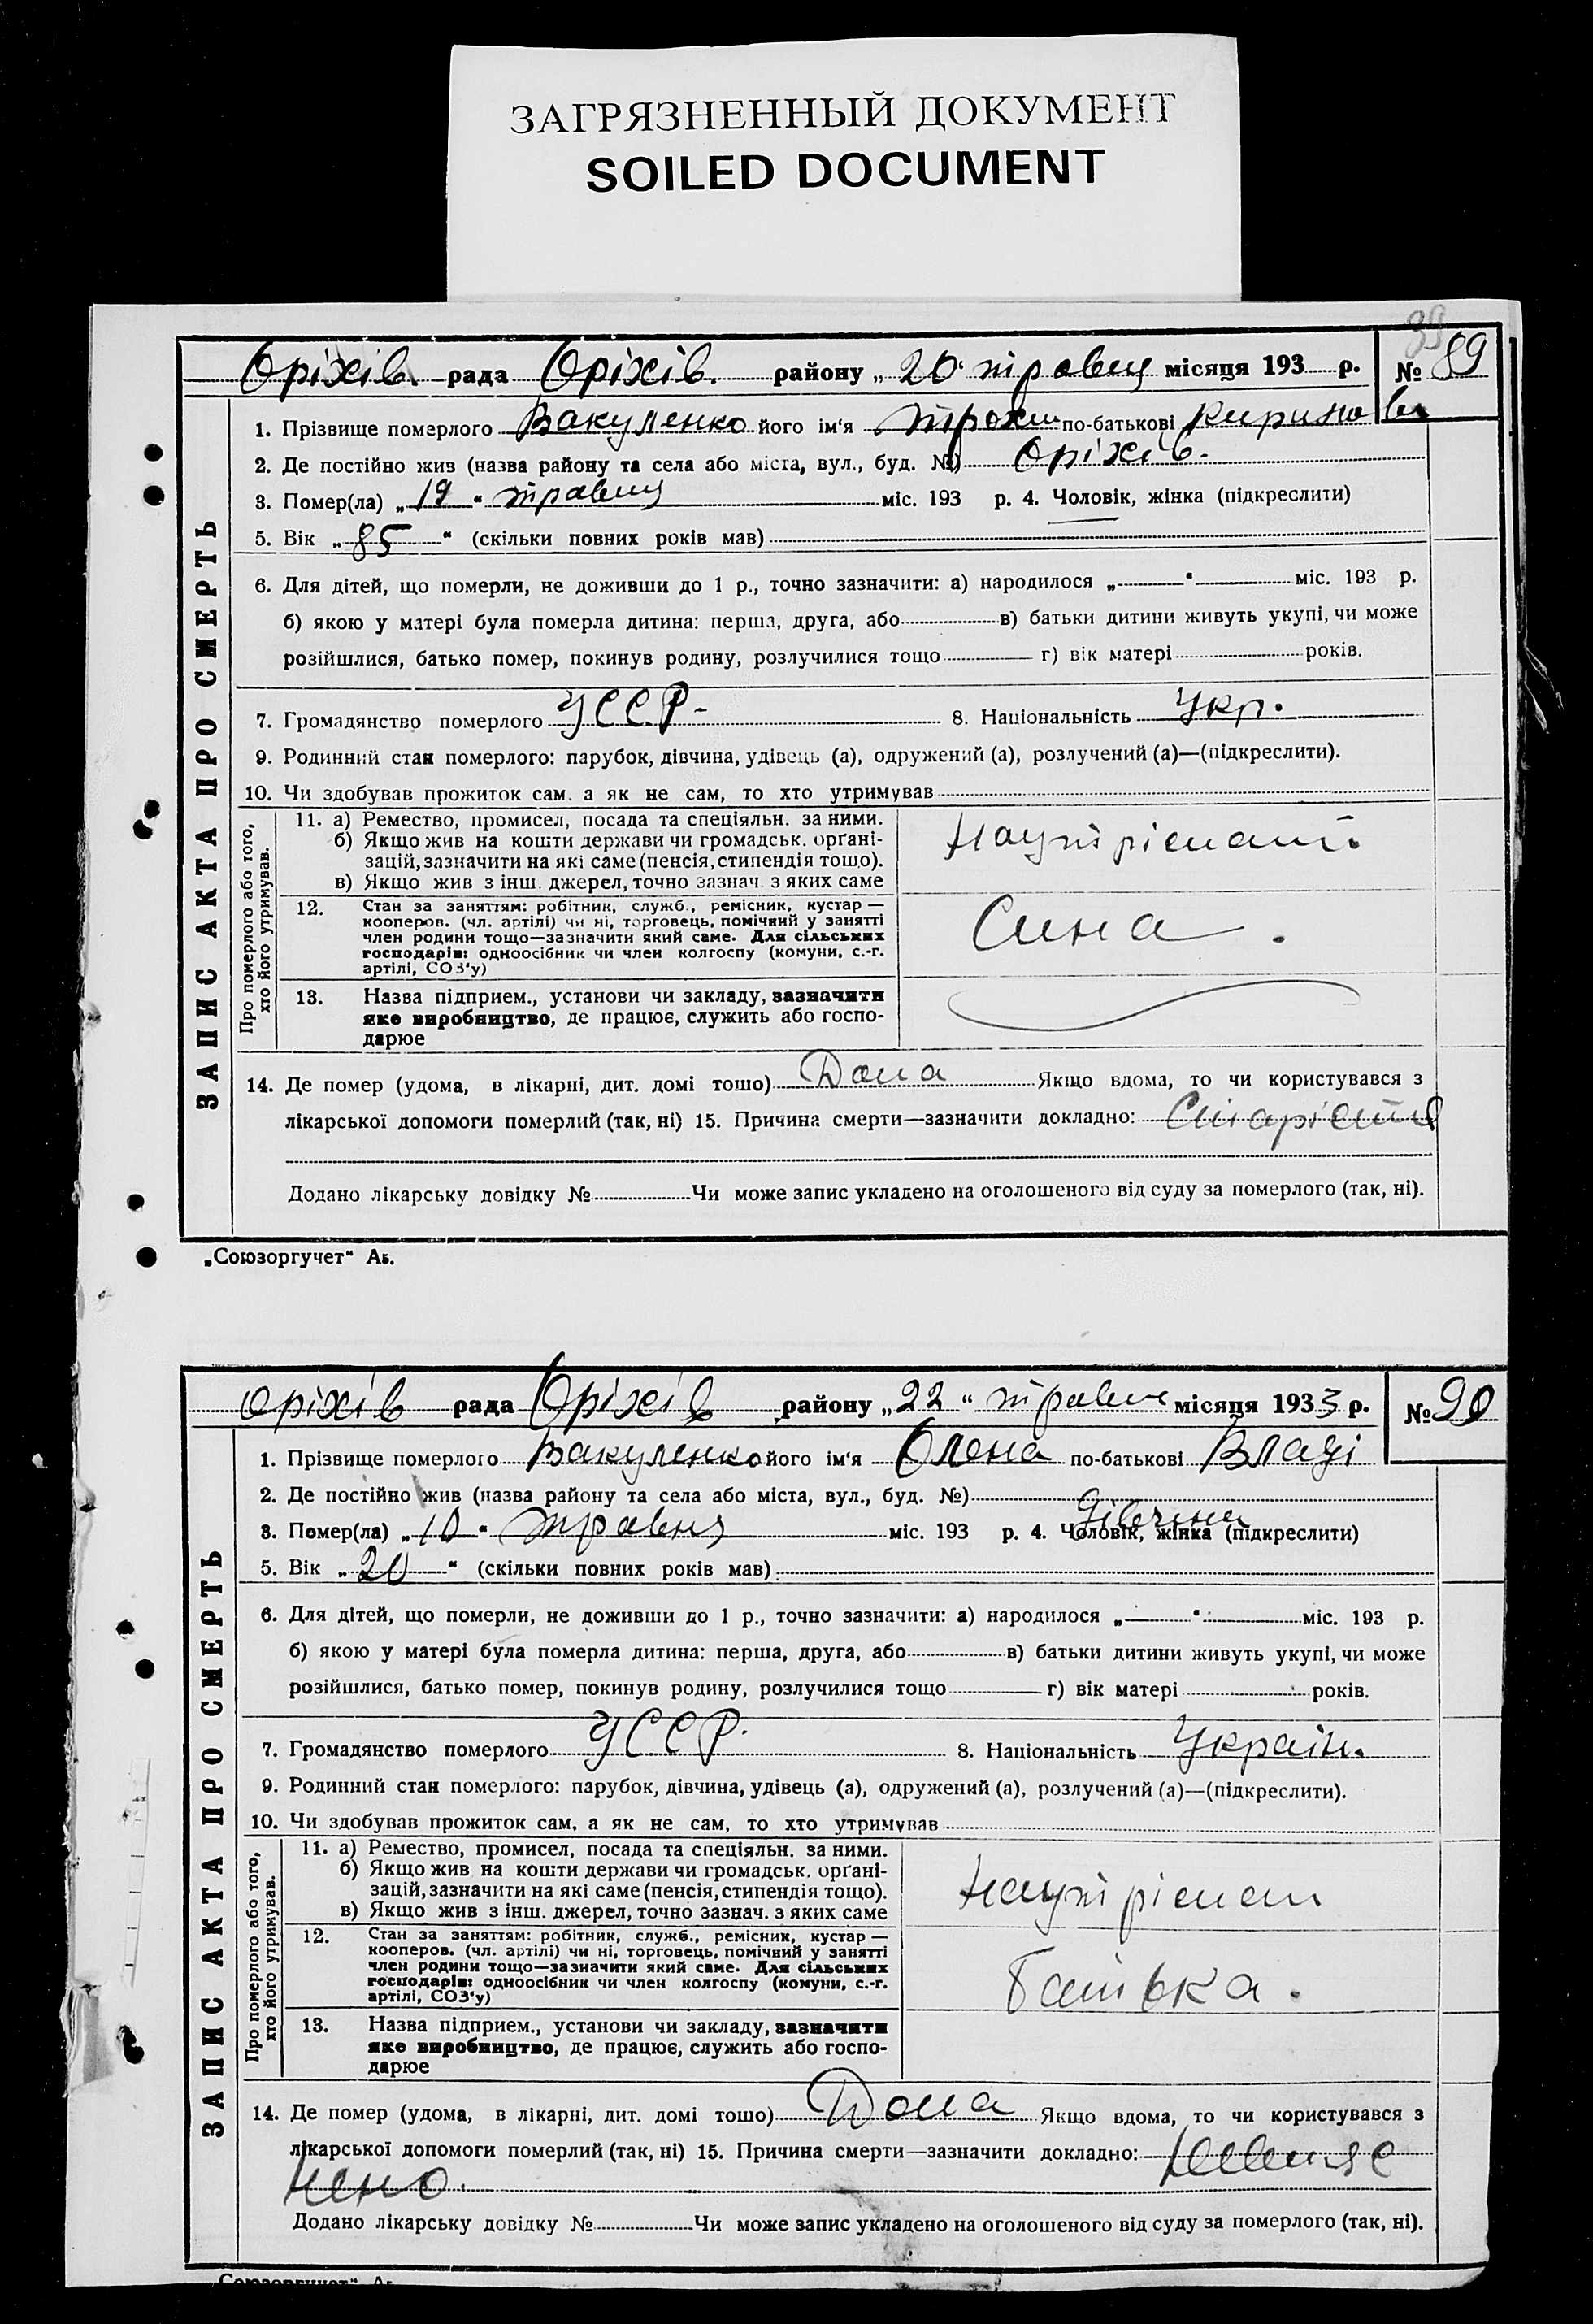 ЗАГРЯЗНЕННЫЙ ДОКУМЕНТ
SOILED DOCUMENT
39
Оріхів. рада Оріхів. району „20“ травня місяця 193 р. № 89
1. Прізвище померлого Вакуленко його ім'я Трохим по-батькові
2. Де постійно жив (назва району та села або міста, вул., буд. №) Оріхів.
3. Помер(ла) „19“ травня міс. 193 р. 4. Чоловік, жінка (підкреслити)
5. Вік „85“ (скільки повних років мав)
6. Для дітей, що померли, не доживши до 1 р., точно зазначити: а) народилося „ “ міс. 193 р.
б) якою у матері була померла дитина: перша, друга, або в) батьки дитини живуть укупі, чи може
розійшлися, батько помер, покинув родину, розлучилися тощо г) вік матері років.
7. Громадянство померлого УССР- 8. Національність Укр.
9. Родинний стан померлого: парубок, дівчина, удівець (а), одружений (а), розлучений (а)—(підкреслити).
10. Чи здобував прожиток сам, а як не сам, то хто утримував
ЗАПИС АКТА ПРО СМЕРТЬ
Про померлого або того, хто його утримував.
11. а) Ремество, промисел, посада та спеціяльн. за ними.
б) Якщо жив на кошти держави чи громадськ. орґані-
зацій, зазначити на які саме (пенсія, стипендія тощо).
в) Якщо жив з інш. джерел, точно зазнач. з яких саме
12. Стан за заняттям: робітник, служб., ремісник, кустар —
кооперов. (чл. артілі) чи ні, торговець, помічний у занятті
член родини тощо—зазначити який саме. Для сільських
господарів: одноосібник чи член колгоспу (комуни, с.-г.
артілі, СОЗ'у)
Сина.
13. Назва підприєм., установи чи закладу, зазначити
яке виробництво, де працює, служить або госпо-
дарює
14. Де помер (удома, в лікарні, дит. домі тошо) Дома Якщо вдома, то чи користувався з
лікарської допомоги померлий (так, ні) 15. Причина смерти—зазначити докладно:
Додано лікарську довідку № Чи може запис укладено на оголошеного від суду за померлого (так, ні).
„Союзоргучет“ Аг.
Оріхів рада Оріхів району „22“ травня місяця 1933 р. № 90
1. Прізвище померлого Вакуленко його ім'я Олена по-батькові
2. Де постійно жив (назва району та села або міста, вул., буд. №)
дівчина
3. Помер(ла) „10“ травня міс. 193 р. 4. Чоловік, жінка (підкреслити)
5. Вік „20“ (скільки повних років мав)
6. Для дітей, що померли, не доживши до 1 р., точно зазначити: а) народилося „ “ міс. 193 р.
б) якою у матері була померла дитина: перша, друга, або в) батьки дитини живуть укупі, чи може
розійшлися, батько помер, покинув родину, розлучилися тощо г) вік матері років.
7. Громадянство померлого УССР. 8. Національність Україн.
9. Родинний стан померлого: парубок, дівчина, удівець (а), одружений (а), розлучений (а)—(підкреслити).
10. Чи здобував прожиток сам, а як не сам, то хто утримував
ЗАПИС АКТА ПРО СМЕРТЬ
Про померлого або того, хто його утримував.
11. а) Ремество, промисел, посада та спеціяльн. за ними.
б) Якщо жив на кошти держави чи громадськ. орґані-
зацій, зазначити на які саме (пенсія, стипендія тощо).
в) Якщо жив з інш. джерел, точно зазнач. з яких саме
12. Стан за заняттям: робітник, служб., ремісник, кустар —
кооперов. (чл. артілі) чи ні, торговець, помічний у занятті
член родини тощо—зазначити який саме. Для сільських
господарів: одноосібник чи член колгоспу (комуни, с.-г.
артілі, СОЗ'у)
Батька.
13. Назва підприєм., установи чи закладу, зазначити
яке виробництво, де працює, служить або госпо-
дарює
14. Де помер (удома, в лікарні, дит. домі тошо) Дома Якщо вдома, то чи користувався з
лікарської допомоги померлий (так, ні) 15. Причина смерти—зазначити докладно:
Додано лікарську довідку № Чи може запис укладено на оголошеного від суду за померлого (так, ні).
„Союзоргучет“ Аг.